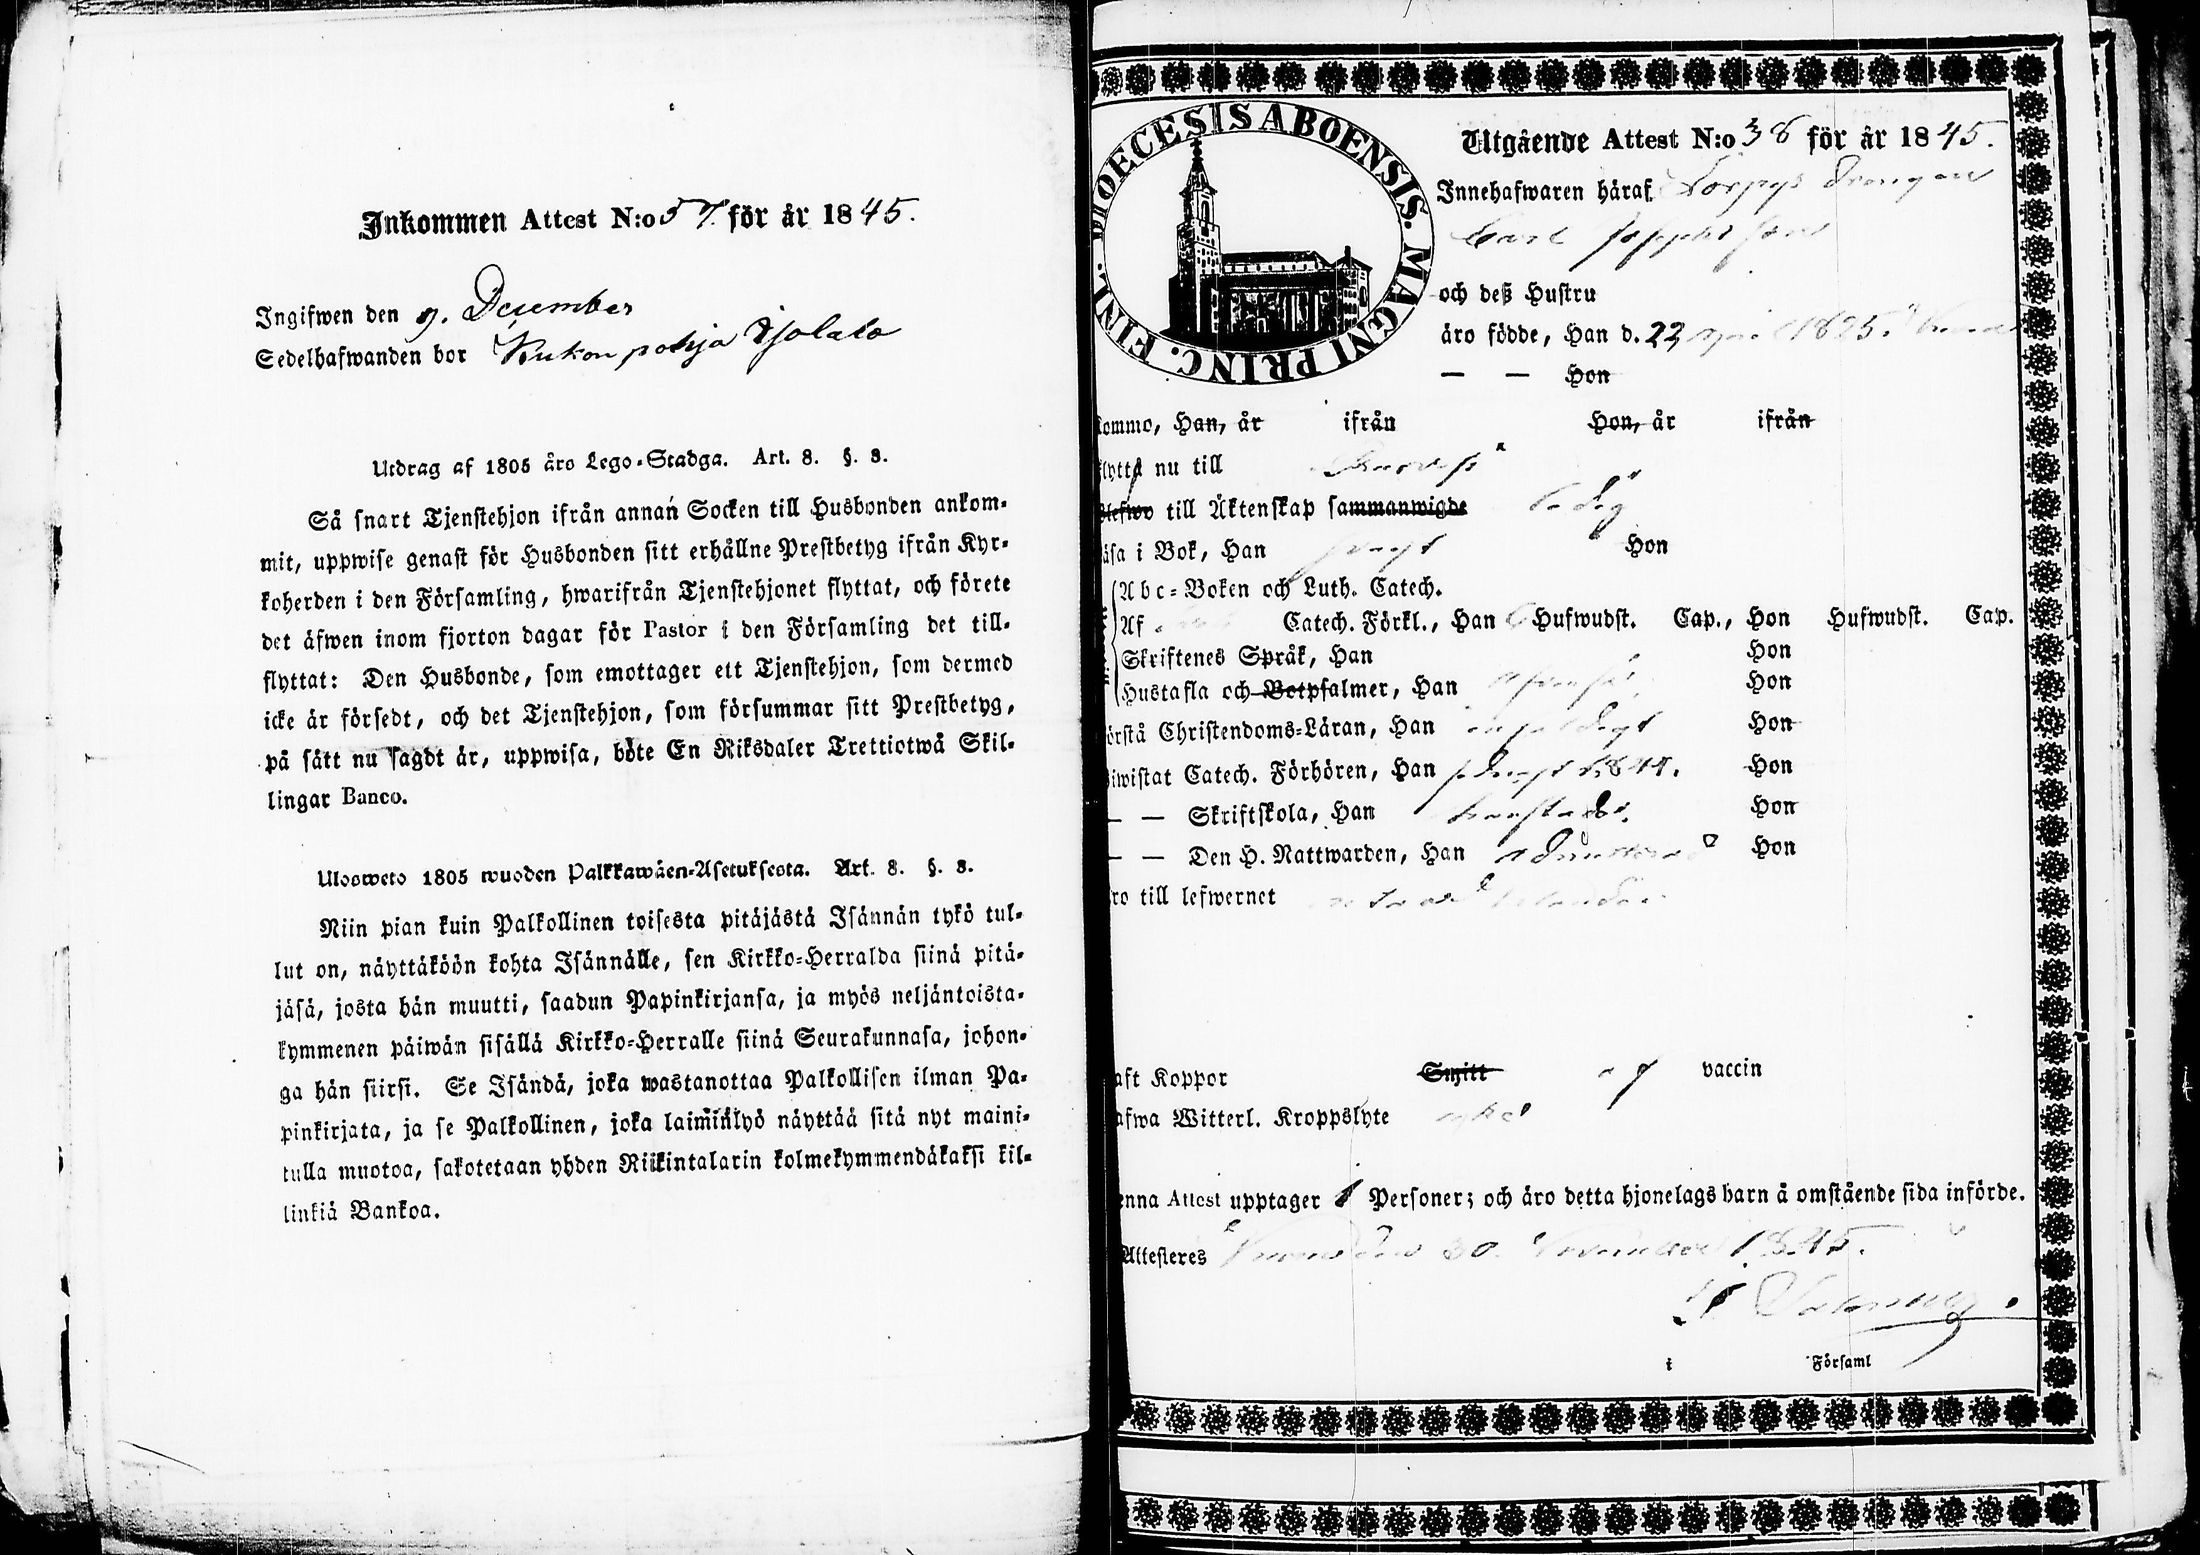 Inkommen Attest N:o 57. för år 1845.
Ingifwen den 9. December
Sedelhafwanden bor Kukonpohja Isolalo
Utdrag af 1805 åro Lego-Stadga. Art. 8. §. 8.
Så snart Tjenstehjon ifrån annan Socken till Husbonden ankom-
mit, uppwise genast för Husbonden sitt erhållne Prestbetyg ifrån Kyr-
koherden i den Församling, hwarifrån Tjenstehjonet flyttat, och förete
det äfwen inom fjorton dagar för Pastor i den Församling det till-
flyttat: Den Husbonde, som emottager ett Tjenstehjon, som dermed
icke är försedt, och det Tjenstehjon, som försummar sitt Prestbetyg,
på sätt nu sagdt är, uppwisa, böte En Riksdaler Trettiotwå Skil-
lingar Banco.
Ulosweto 1805 wuoden Palkkawäen-Asetuksesta. Art. 8. §. 8.
Niin pian kuin Palkollinen toisesta pitäjästä Isännän tykö tul-
lut on, näyttäköön kohta Isännälle, sen Kirkko-Herralda siinä pitä-
jäsä, josta hän muutti, saadun Papinkirjansa, ja myös neljäntoista-
kymmenen päiwän sisällä Kirkko-Herralle siinä Seurakunnasa, johon-
ga hän siirsi. Se Isändä, joka wastanottaa Palkollisen ilman Pa-
pinkirjata, ja se Palkollinen, joka laiminlyö näyttää sitä nyt maini-
tulla muotoa, sakotetaan yhden Riikintalarin kolmekymmendäkaksi kil-
linkiä Bankoa.
DIOECESIS ABOENSIS. MAGNI PRINC. FINL.
Utgående Attest N:o 38 för år 1845.
Innehafwaren häraf Torpgs Drengen
Carl Josephs son
och deß Hustru
äro födde, Han d. 22 April 1825.
— — Hon
ommo, Han, år ifrån Hon, år ifrån
lytta nu till
lefwo till Äktenskap sammanwigde Ledig
äsa i Bok, Han Hon
Abc-Boken och Luth. Catech.
Af Catech. Förkl., Han Hufwudst. Cap., Hon Hufwudst. Cap.
Skriftenes Språk, Han Hon
Hustafla och Botpsalmer, Han Hon
örstå Christendoms-Läran, Han enfaldigt Hon
iwistat Catech. Förhören, Han 1844. Hon
— — Skriftskola, Han Hon
— — Den H. Nattwarden, Han admitterad Hon
ro till lefwernet
aft Koppor Smitt af vaccin
afwa Witterl. Kroppslyte
enna Attest upptager 1 Personer; och äro detta hjonelags barn å omstående sida införde.
Attesteres 30. November 1845.
i Församl